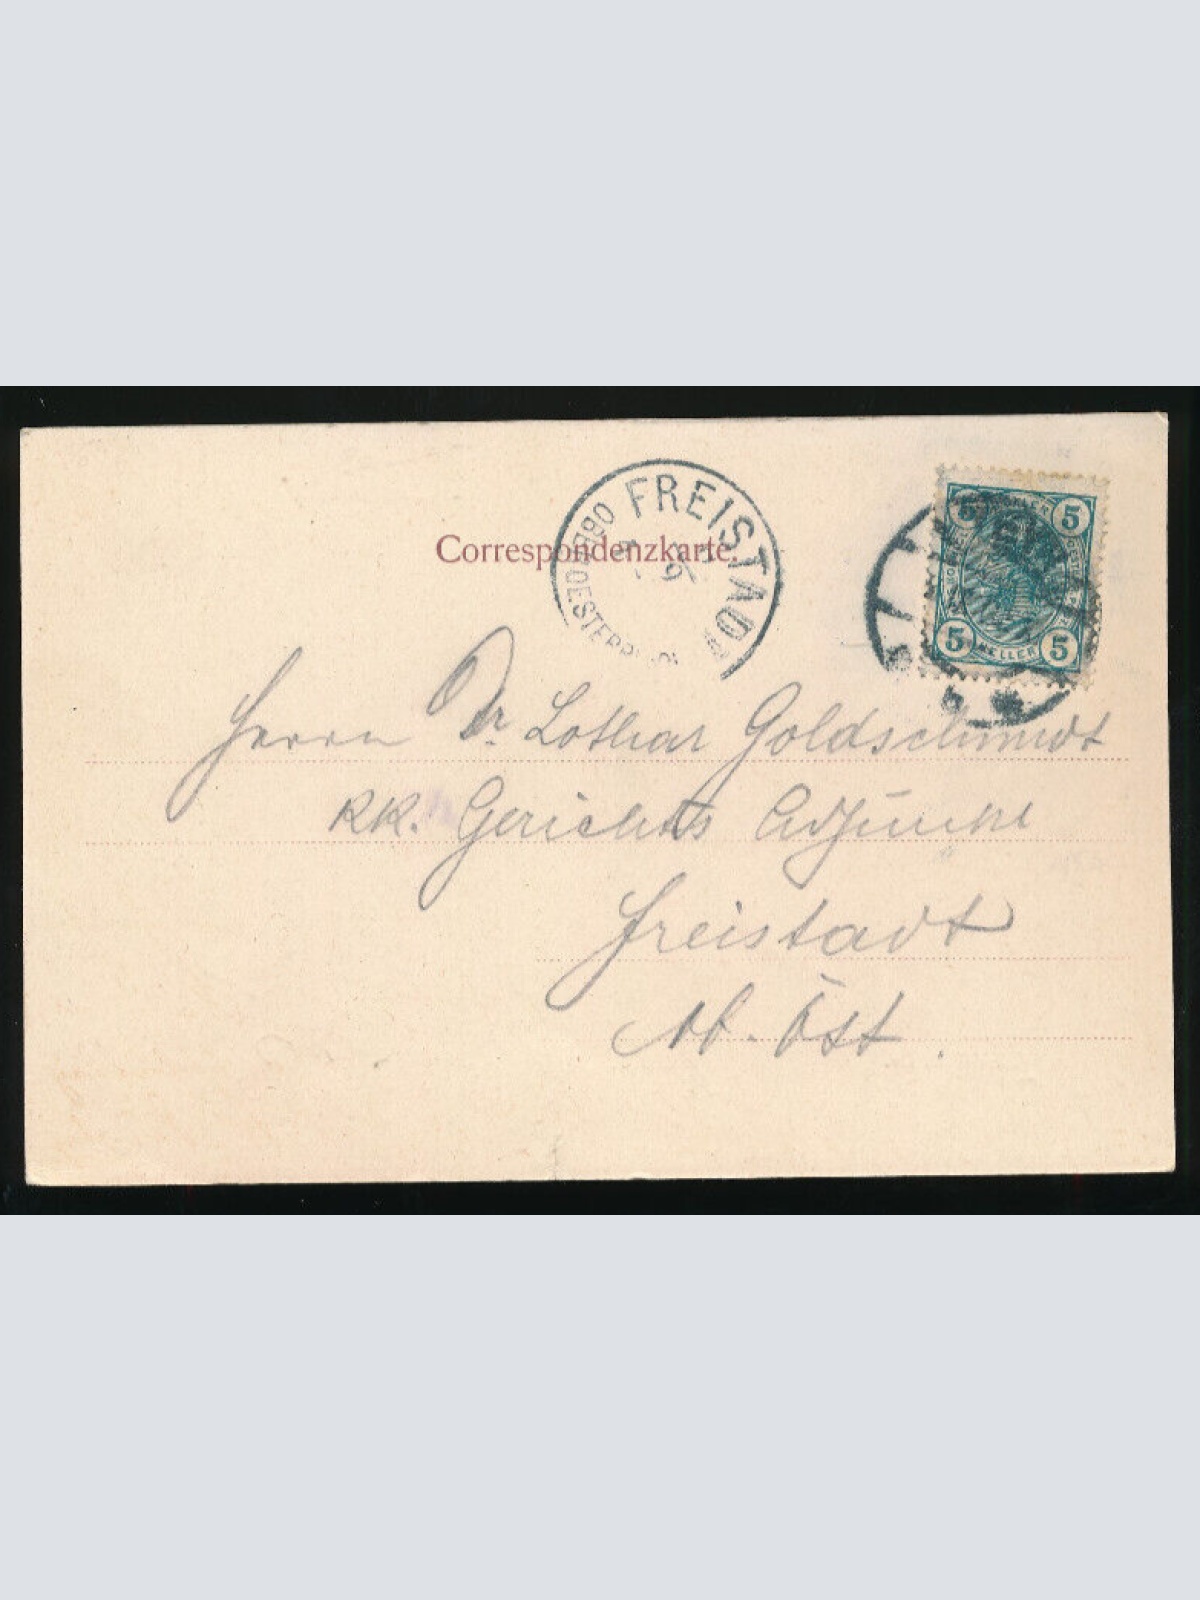 Correspondenzkarte.
FREISTADT
OBEROESTERREICH
5 HELLER 5
5 HELLER 5
Herrn Dr Lothar Goldschmidt
KK. Gerichts Adjunkt
Freistadt
Ob. Öst.